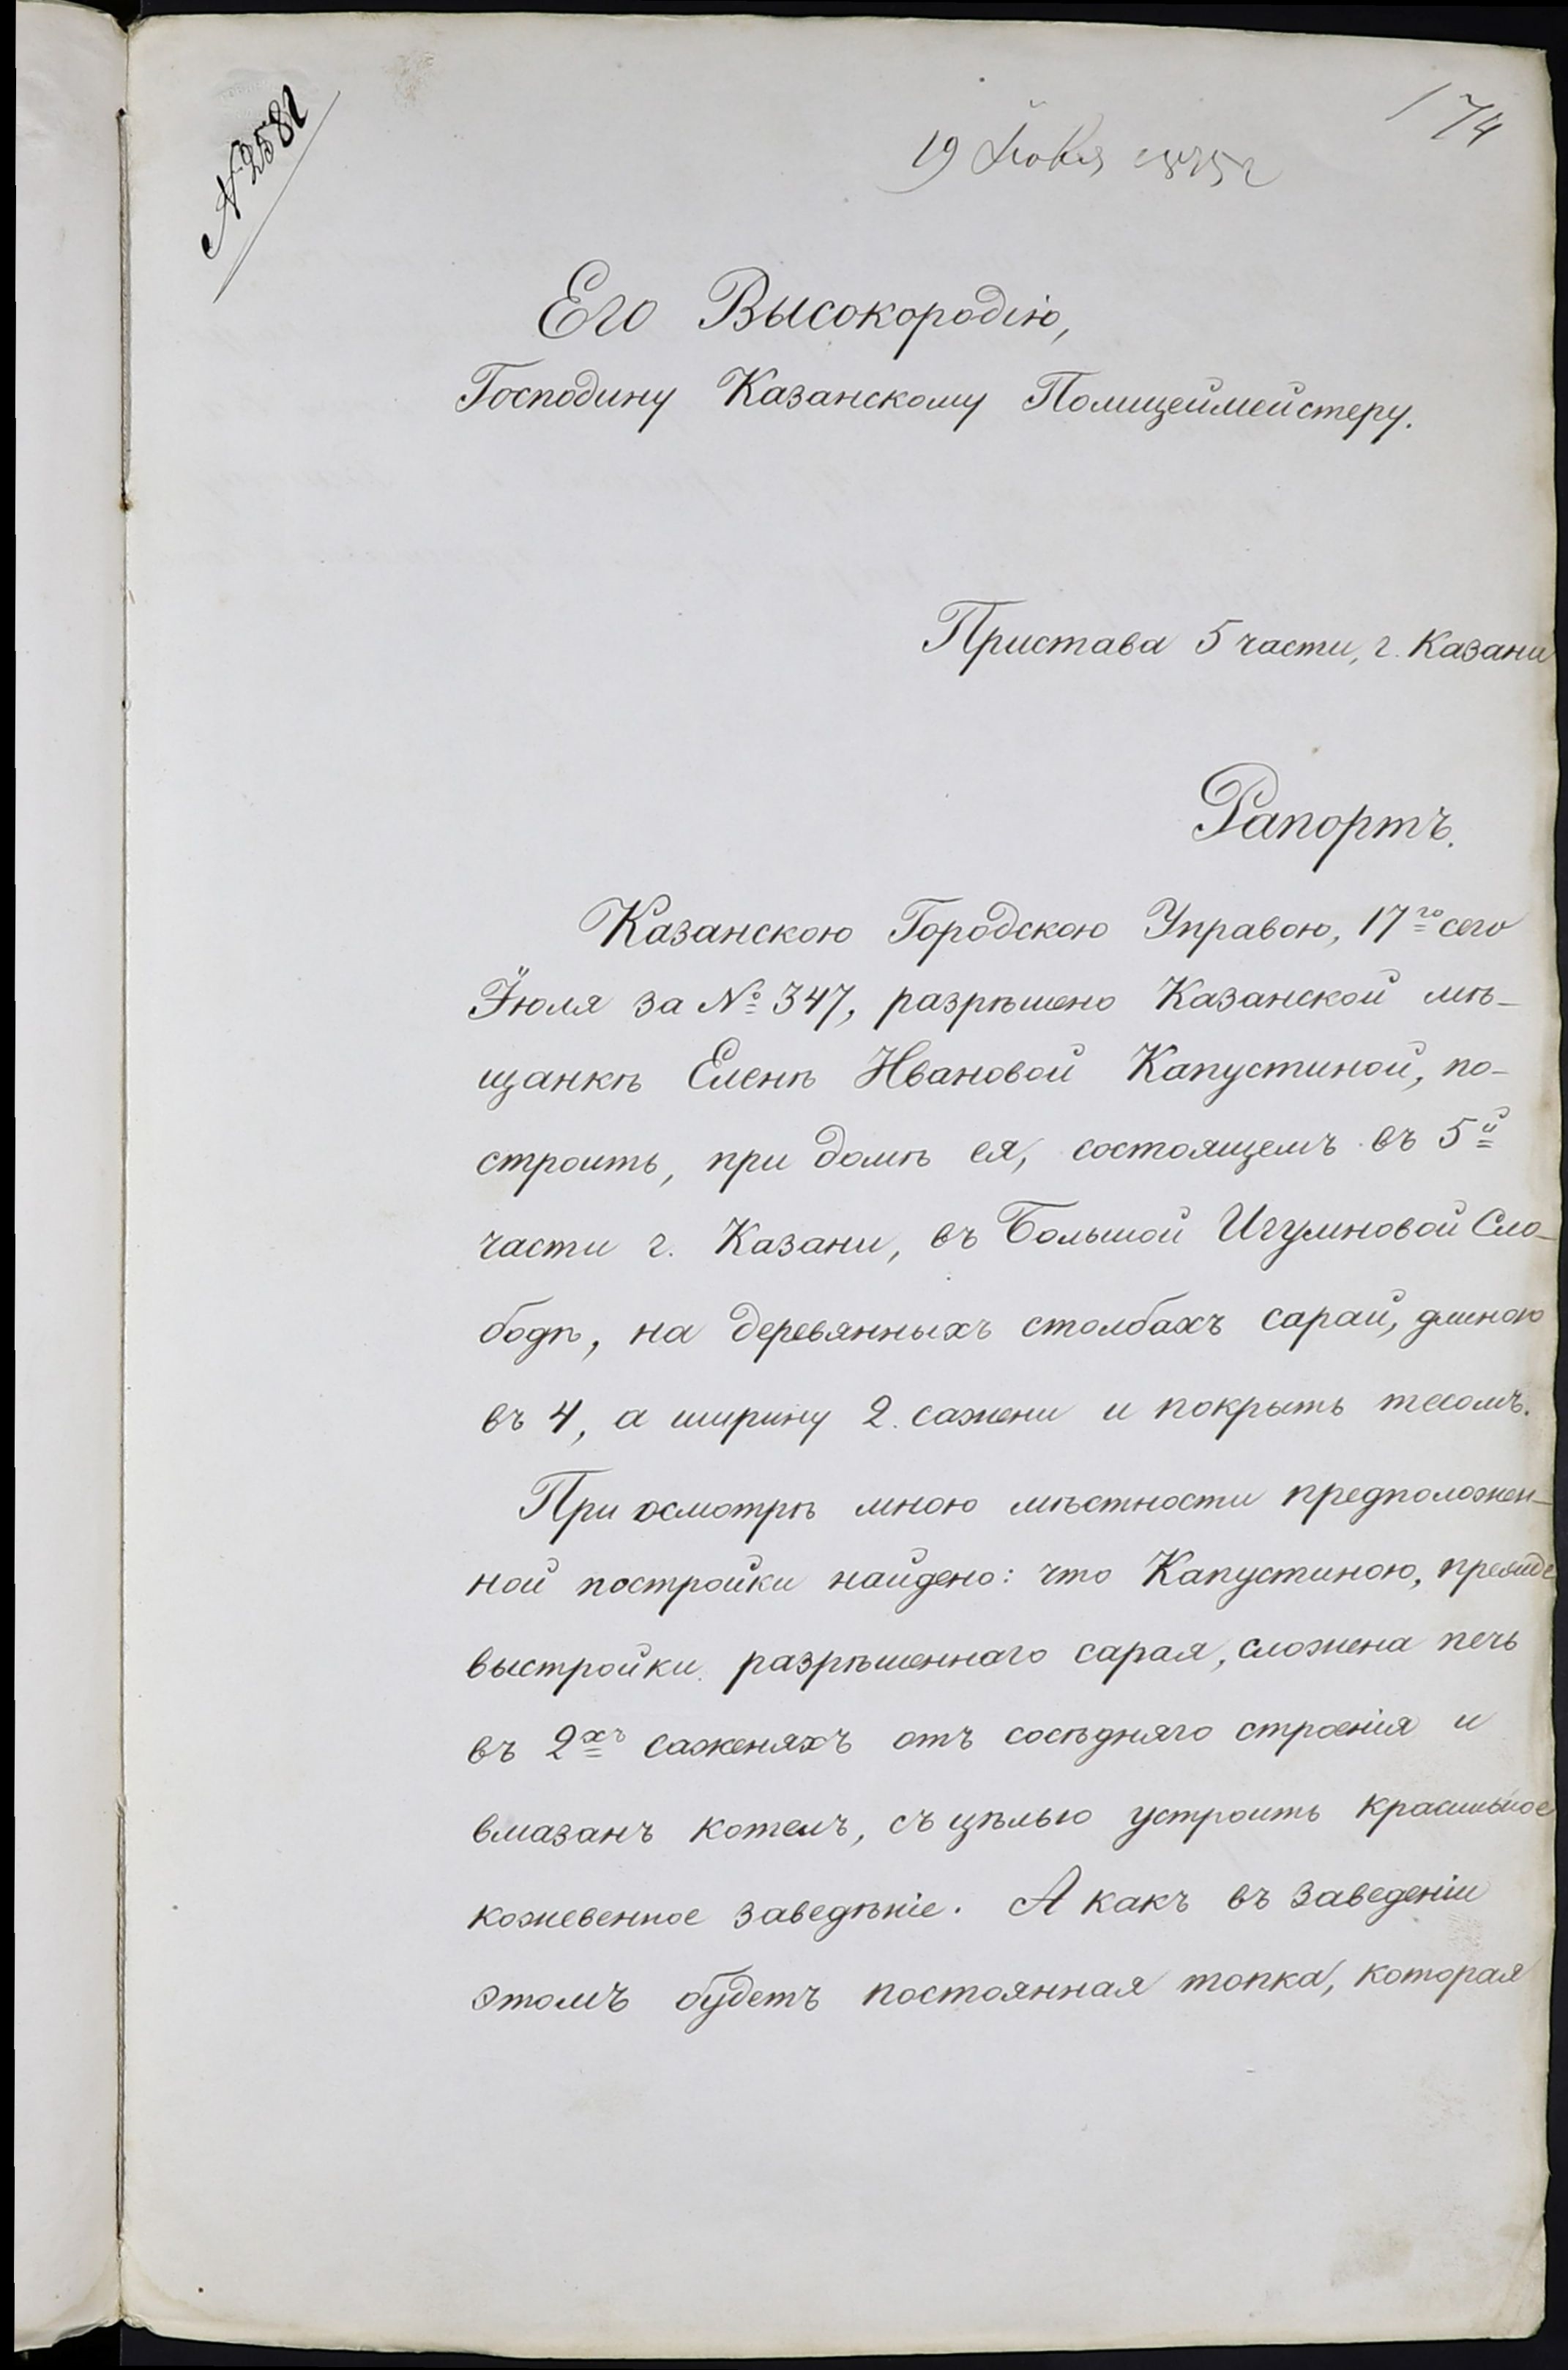 № 2581
174
19 Июля
Его Высокородію,
Господину Казанскому Полицеймейстеру.
Пристава 5 части, г. Казани
Рапортъ.
Казанскою Городскою Управою, 17го сего
Іюля за № 347, разрѣшено Казанской мѣ-
щанкѣ Еленѣ Ивановой Капустиной, по-
строить, при домѣ ея, состоящемъ въ 5й
части г. Казани, въ Большой Игумновой Сло-
бодѣ, на деревянныхъ столбахъ сарай, длиною
въ 4, а ширину 2. сажени и покрыть тесомъ.
При осмотрѣ мною мѣстности предположен-
ной постройки найдено: что Капустиною, прежде
выстройки разрѣшеннаго сарая, сложена печь
въ 2хъ саженяхъ отъ сосѣдняго строенія и
вмазанъ котелъ, съ цѣлью устроить красильное
кожевенное заведѣніе. А какъ въ заведеніи
этомъ будетъ постоянная топка, которая